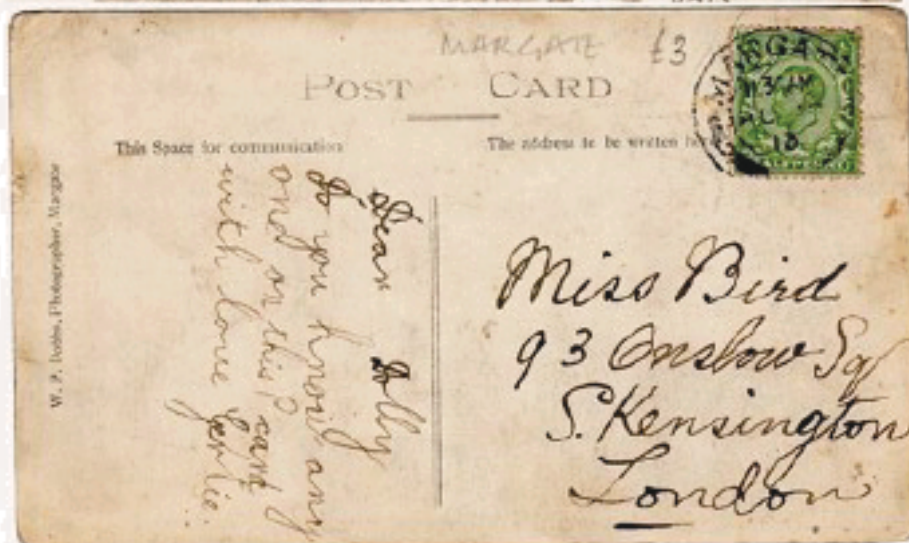 MARGATE £3
POST CARD
This Space for communication
The address to be written here
W. P. Photographer, Margate
Dear Dolly
Do you know any
one on this? card
with love
Gertie.
Miss Bird
93 Onslow Sq
S. Kensington
London
MARGATE
13